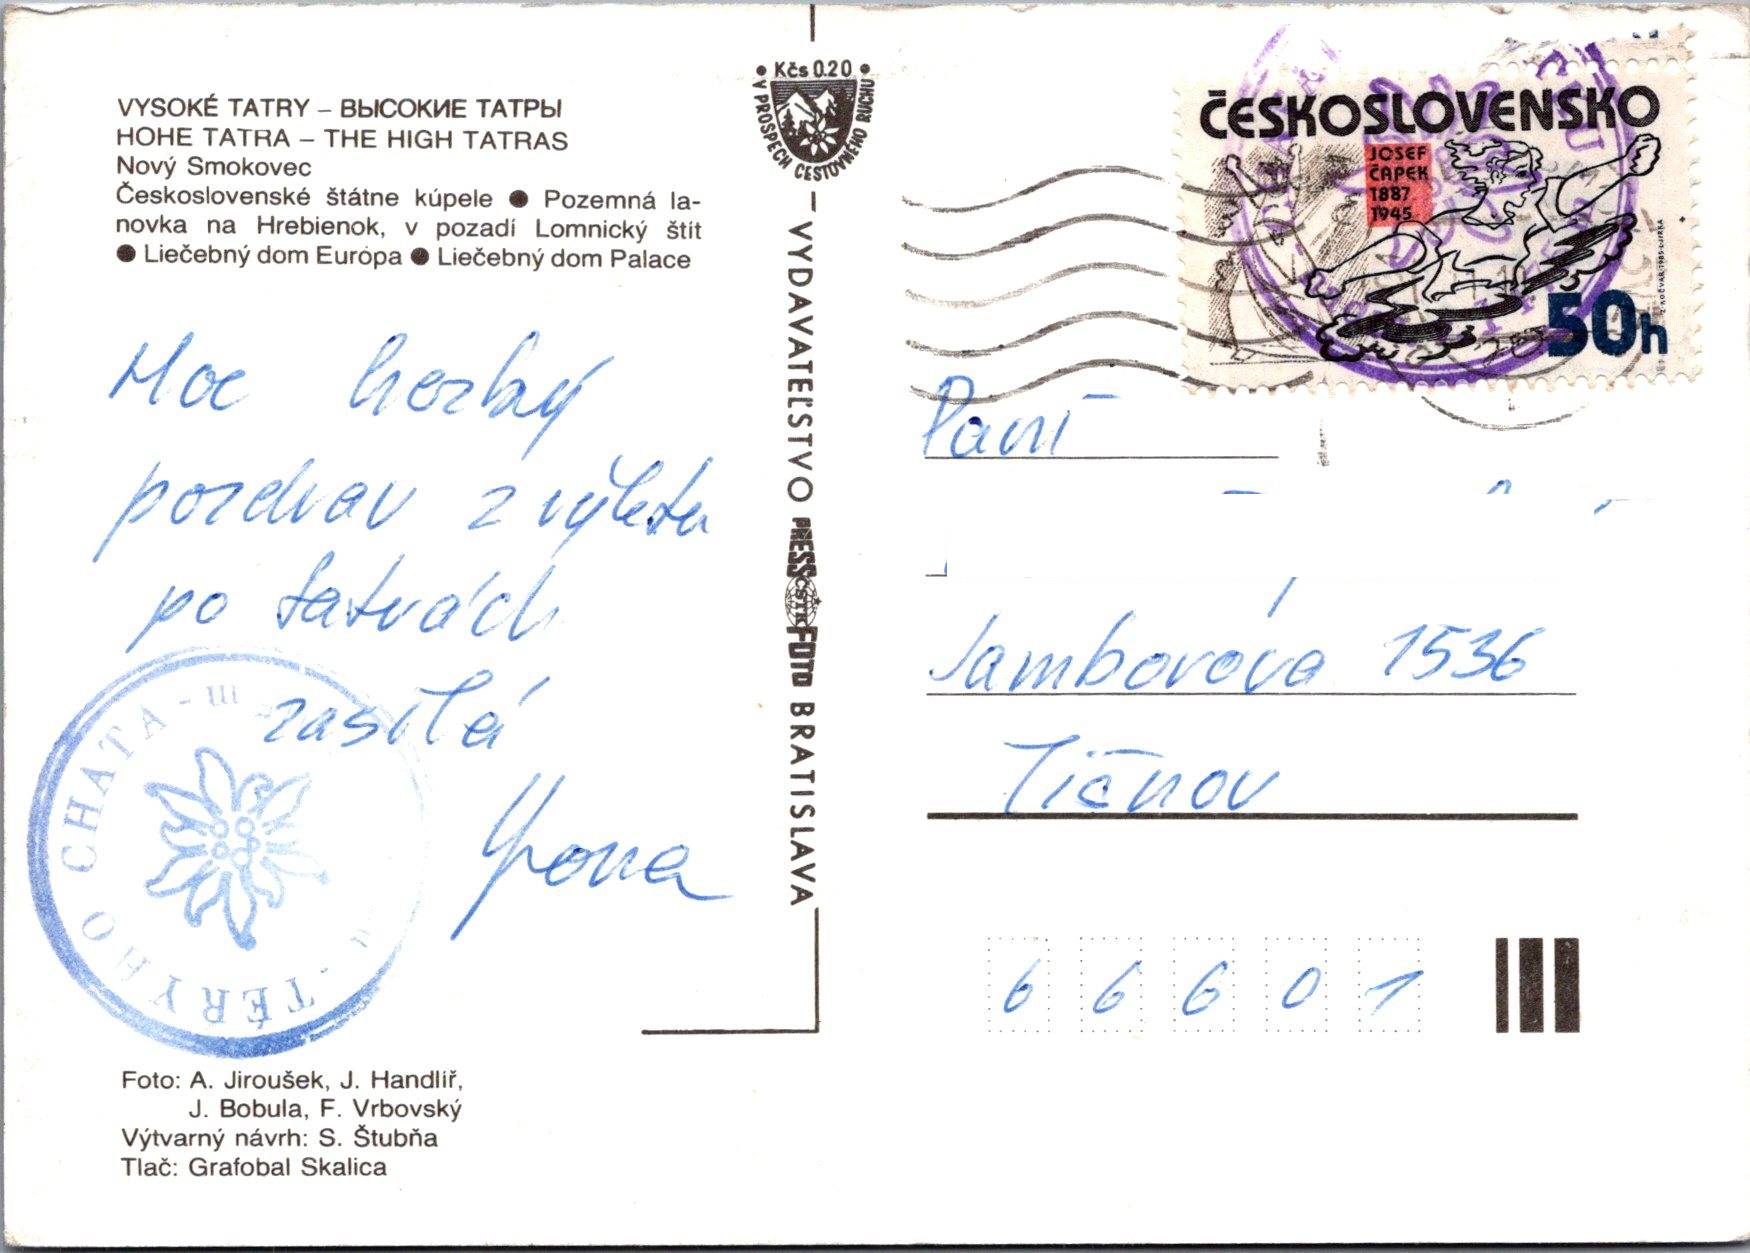 VYSOKÉ TATRY – ВЫСОКИЕ ТАТРЫ
HOHE TATRA – THE HIGH TATRAS
Nový Smokovec
Československé štátne kúpele ● Pozemná la-
novka na Hrebienok, v pozadí Lomnický štít
● Liečebný dom Európa ● Liečebný dom Palace
Moc hezký
pozdrav z výletu
po Tatrách
zasílá
TÉRYHO CHATA
Foto: A. Jiroušek, J. Handlíř,
J. Bobula, F. Vrbovský
Výtvarný návrh: S. Štubňa
Tlač: Grafobal Skalica
Kčs 0.20
V PROSPECH CESTOVNÉHO RUCHU
VYDAVATEĽSTVO PRESSFOTO BRATISLAVA
ČSTK
ČESKOSLOVENSKO
JOSEF
ČAPEK
1887
1945
50h
Paní
Jamborova 1536
Tišnov
66601